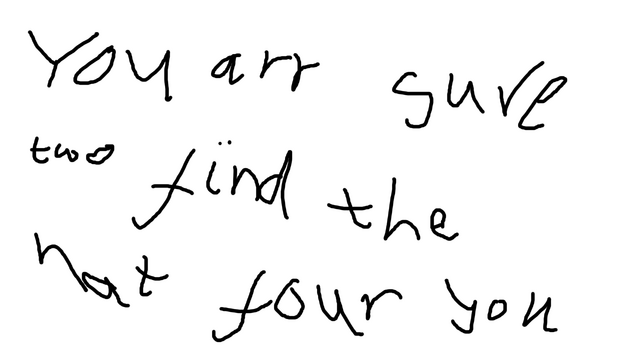 You arr sure
two fïnd the
hat four you